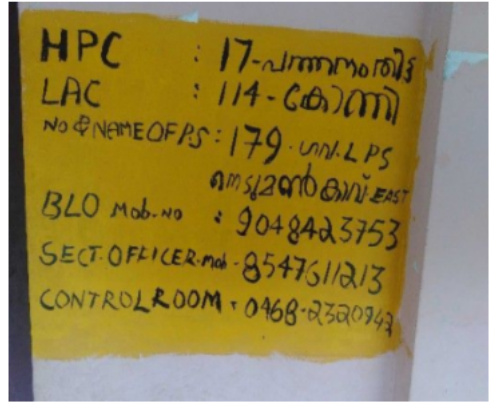 HPC : 17-പത്തനംതിട്ട
LAC : 114-കോന്നി
NO & NAME OF P.S : 179-ഗവ.LPS
നെടുമൺകാവ് EAST
BLO Mob.NO : 9048423753
SECT.OFFICER.mob-8547611213
CONTROLROOM : 0468-2320942